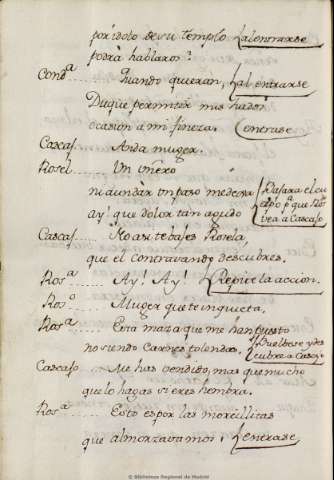 por ydolo de su templo (al entrarse
podrà hablaros?
Cond.ᵃ Quando quieran, (al entrarse
Duque permitir mis hados
ocasion à mi fineza. (Entrase
Cascaj. Anda muger.
Rosel. Un
ni aun dar un paso me dexa (Pasarà el
cuerpo p.ᵃ que
vea a Cascajo
ay! que dolor tan agudo
Cascaj. No asi te bajes Rosela,
que el contravando descubres.
Ros.ᵃ Ay! Ay! (Repite la accion.
Ros.º Muger que te inquieta.
Ros.ᵃ Esta maza que me han puesto
no siendo Carnes tolendas. (Buelbese y des
cubre a Cascajo
Cascajo Me has vendido, mas que mucho
que lo hagas si eres hembra.
Ros.ᵃ Esto es por las morcillitas
que almorzava mos. (Entrase
© Biblioteca Regional de Madrid